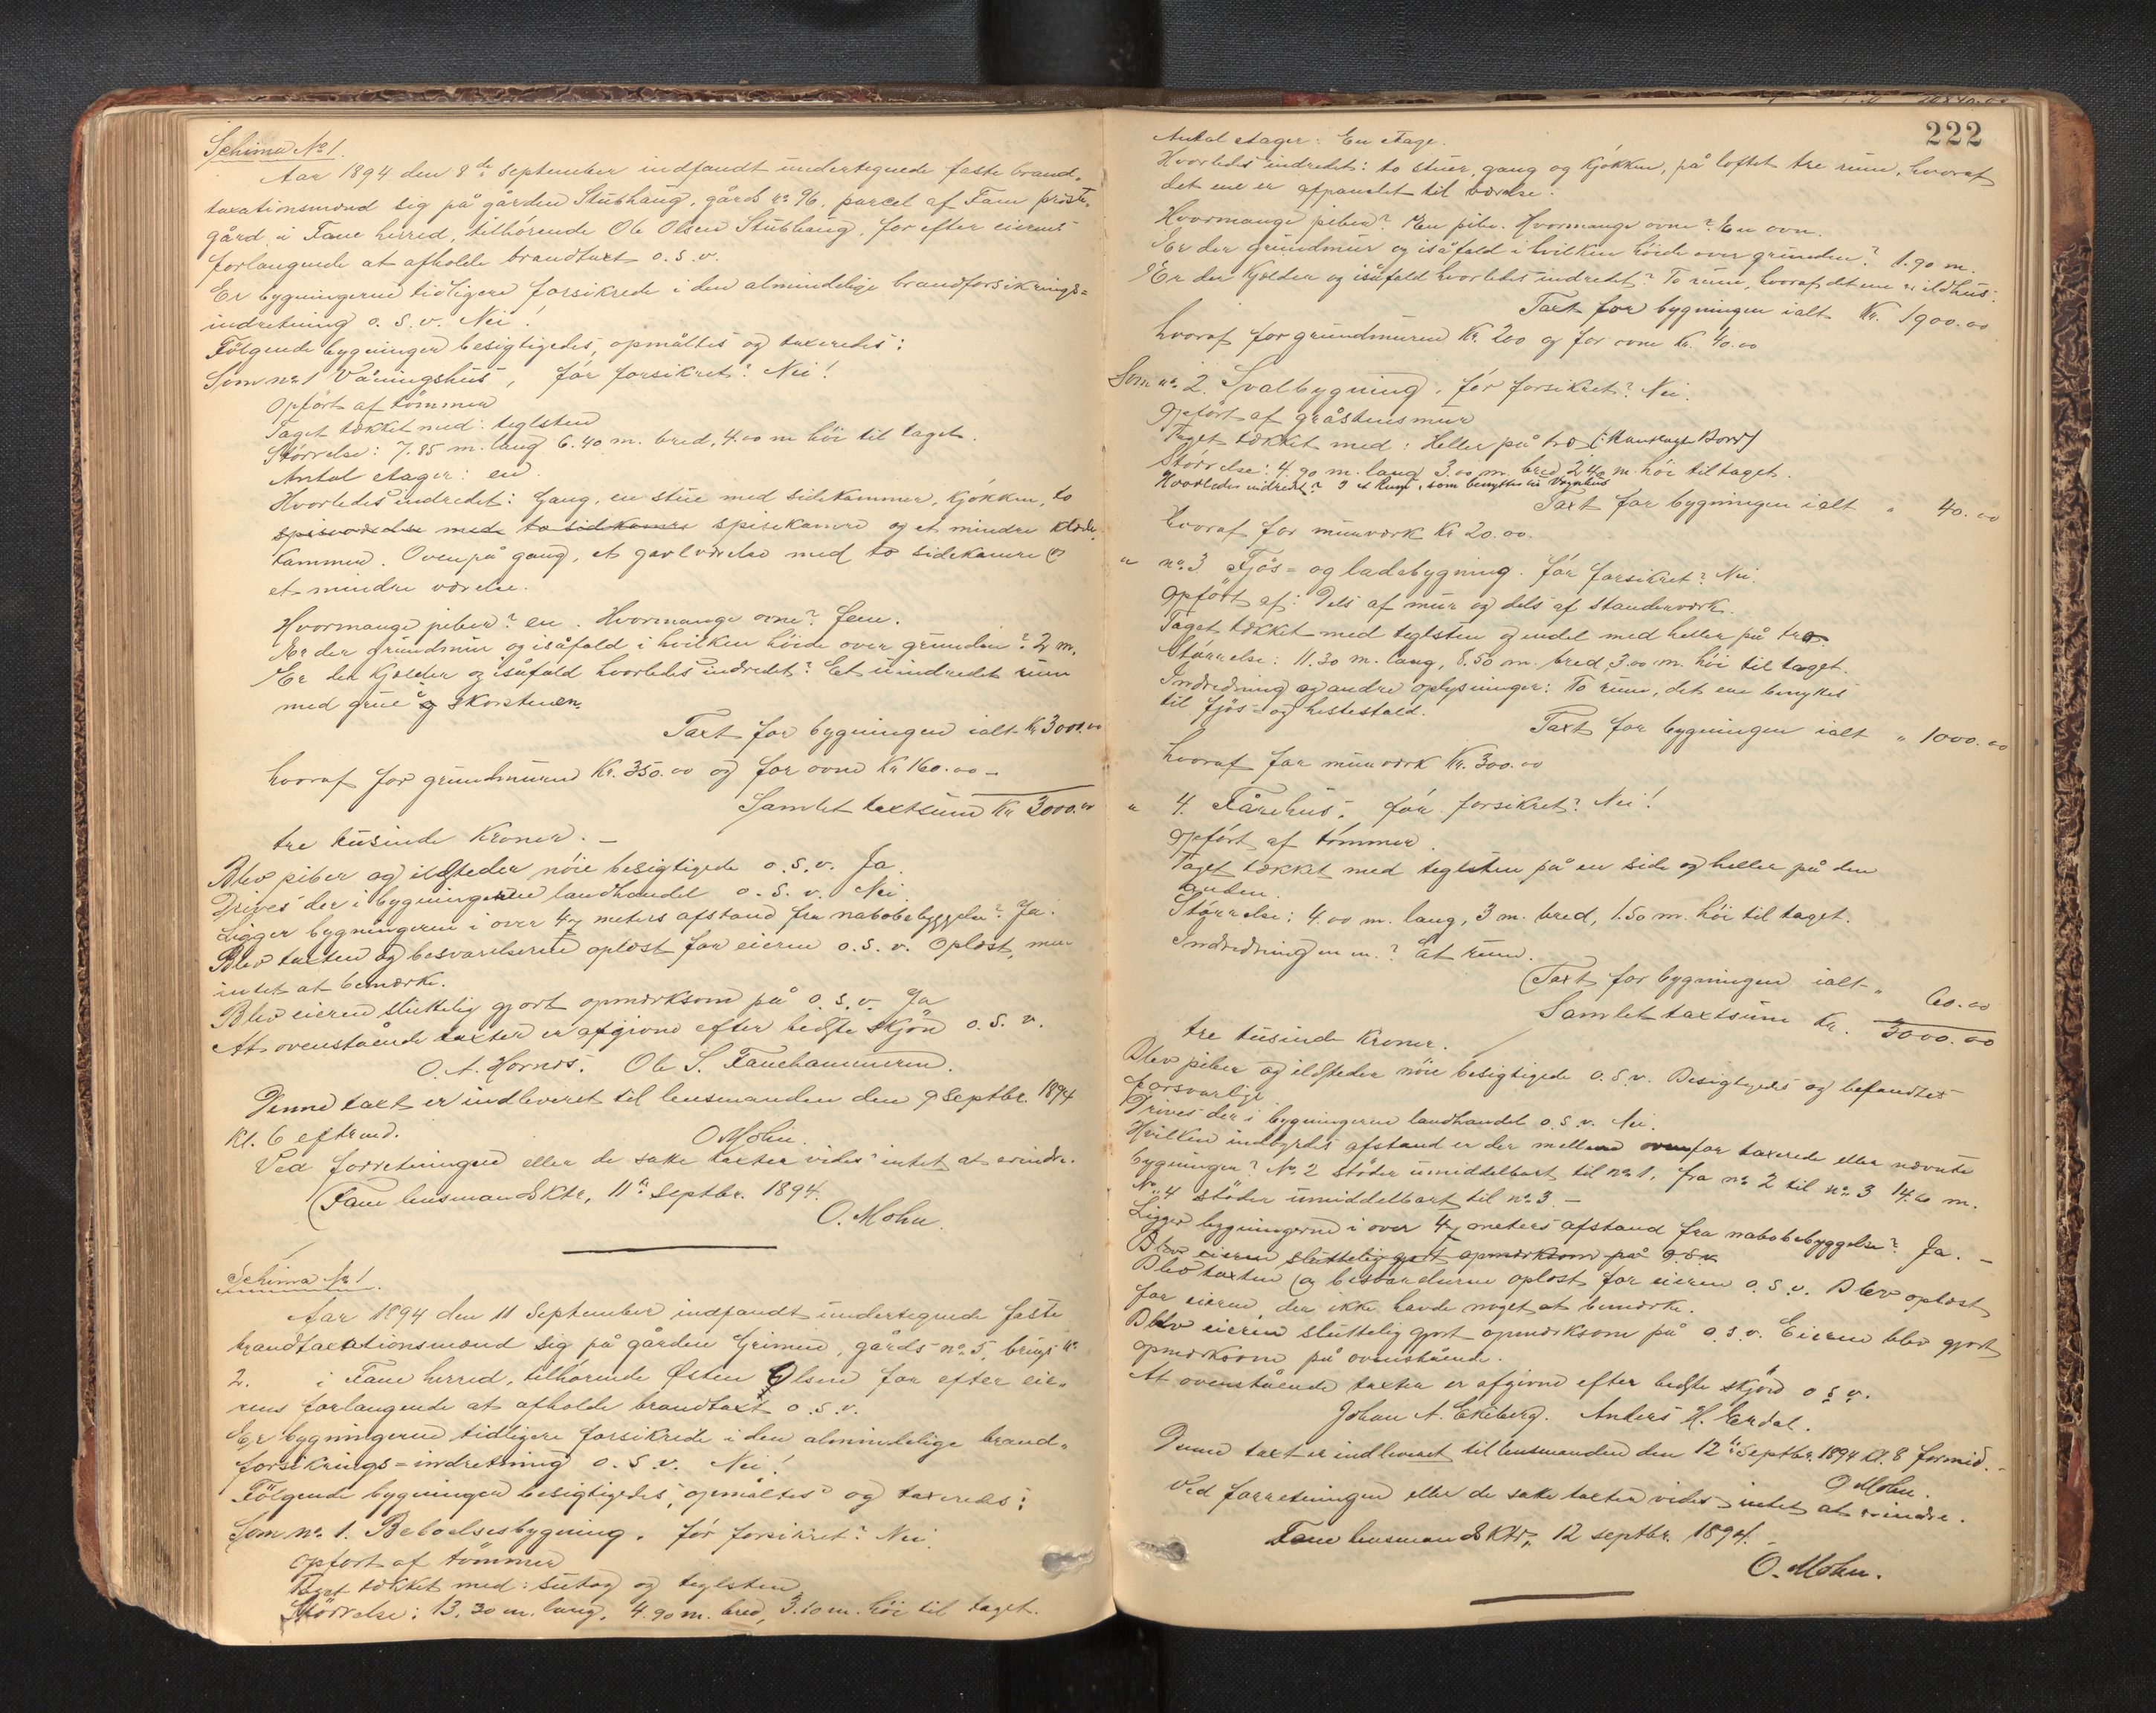 Schima No 1.
Aar 1894 den 8de September indfandt undertegnede faste brand-
taxationsmænd sig på gården Stubhaug, gårds no 96, parcel af Fane præste-
gård i Fane herred, tilhørende Ole Olsen Stubhaug, for efter eierens
forlangende at afholde brandtaxt o.s.v.
Er bygningerne tidligere forsikrede i den almindelige brandforsikrings-
indretning o.s.v. Nei!
Følgende bygninger besigtigedes, opmåltes og taxeredes:
Som no 1 Våningshus, før forsikret? Nei!
Opført af tømmer
Taget tækket med: teglsten
Størrelse: 7.85 m. lang 6.40 m. bred, 4.00 m høi til taget.
Antal etager: en.
Hvorledes indredet: Gang, en stue med sidekammer, kjøkken, to
spiseværelse med to sidekamre spisekamre og et mindre klæde-
kammer. Ovenpå gang, et gavlværelse med to sidekamre &
et mindre værelse.
Hvormange piber? en. Hvormange ovne? fem.
Er der grundmur og isåfald i hvilken høide over grunden? 2 m.
Er der kjælder og isåfald hvorledes indredet? Et uindredet rum
med grue i skorstenen
Taxt for bygningen ialt Kr 3000.00
hvoraf for grundmuren Kr. 350.00 og for ovne Kr 160.00 -
Samlet taxtsum Kr 3000.00
tre tusinde Kroner. -
Blev piber og ildsteder nøie besigtigede o.s.v. Ja.
Drives der i bygningerne landhandel o.s.v. Nei.
Ligger bygningerne i over 4 meters afstand fra nabobebyggelse? Ja.
Blev taxten og besvarelserne oplæst for eieren o.s.v. Oplæst, men
intet at bemærke.
Blev eieren sluttelig gjort opmærksom på o.s.v. Ja
At ovenstående taxter er afgivne efter bedste skjøn o.s.v.
O. A. Hornes. Ole S. Fanehammeren.
Denne taxt er indleveret til lensmanden den 9 Septbr. 1894
Kl. 6 efterm.
O Mohn.
Ved forretningen eller de satte taxter vides intet at erindre.
Fane lensmandsktr, 11te Septbr. 1894.
O. Mohn.
Schima No 1.
Aar 1894 den 11 September indfandt undertegnede faste
brandtaxationsmænd sig på gården Grimen, gårds no 5, brugs no
2. i Fane herred, tilhørende Østen Olsen for efter eie-
rens forlangende at afholde brandtaxt o.s.v.
Er bygningerne tidligere forsikrede i den almindelige brand-
forsikrings-indretning o.s.v. Nei!
Følgende bygninger besigtigedes, opmåltes og taxeredes:
Som no 1. Beboelsesbygning, før forsikret? Nei.
Opført af tømmer
Taget tækket med: sutag og teglsten
Størrelse: 13.30 m. lang, 4.90 m. bred, 3.10 m. høi til taget.
222
Antal etager: En etage.
Hvorledes indredet: to stuer, gang og kjøkken, på loftet tre rum, hvoraf
det ene er afpanelet til værelse.
Hvormange piber? En pibe. Hvormange ovne? En ovn.
Er der grundmur og isåfald i hvilken høide over grunden? 1.90 m.
Er der kjælder og isåfald hvorledes indredet? To rum, hvoraf det ene er ildhus.
Taxt for bygningen ialt Kr. 1900.00
hvoraf for grundmuren Kr. 200 og for ovne Kr. 40.00
Som no 2. Svalbygning, før forsikret? Nei.
Opført af gråstensmur
Taget tækket med: Heller på træ
Størrelse: 4.90 m. lang 3.00 m. bred 2.40 m. høi til taget.
Hvorledes indredet? I et Rum, som benyttes til Vognhus
Taxt for bygningen ialt " 40.00
hvoraf for murværk Kr 20.00.
" no 3 Fjøs- og ladebygning. før forsikret? Nei.
Opført af: Dels af mur og dels af standerværk.
Taget tækket med teglsten og endel med heller på træ.
Størrelse: 11.30 m. lang, 8.50 m. bred, 3.00 m. høi til taget.
Indredning og andre oplysninger: To rum, det ene benyttes
til fjøs- og hestestald.
Taxt for bygningen ialt " 1000.00
hvoraf for murværk Kr. 300.00
" 4. Fårehus, før forsikret? Nei!
Opført af tømmer.
Taget tækket med teglsten på en side og heller på den
anden.
Størrelse: 4.00 m. lang, 3 m. bred, 1.50 m. høi til taget.
Indredning m m.? Et rum.
Taxt for bygningen ialt " 60.00
Samlet taxtsum Kr. 3000.00
tre tusinde Kroner.
Blev piber og ildsteder nøie besigtigede o.s.v. Besigtigedes og befandtes
forsvarlige.
Drives der i bygningerne landhandel o.s.v. Nei.
Hvilken indbyrdes afstand er der mellem ovenfor taxerede eller nævnte
bygninger? No 2 støder umiddelbart til no 1, fra no 2 til no 3 14.60 m.
No 4 støder umiddelbart til no 3 -
Ligger bygningerne i over 4 meters afstand fra nabobebyggelse? Ja. -
Blev eieren sluttelig gjort opmærksom på o.s.v.
Blev taxten og besvarelserne oplæst for eieren o.s.v. Blev oplæst
for eieren, der ikke havde noget at bemærke.
Blev eieren sluttelig gjort opmærksom på o.s.v. Eieren blev gjort
opmærksom på ovenstående.
At ovenstående taxter er afgivne efter bedste skjøn o.s.v.
Johan A. Ekeberg. Anders H. Erdal.
Denne taxt er indleveret til lensmanden den 12te Septbr. 1894 kl. 8 formid.
O Mohn.
Ved forretningen eller de satte taxter vides intet at erindre.
Fane lensmandsktr, 12 septbr. 1894.
O. Mohn.